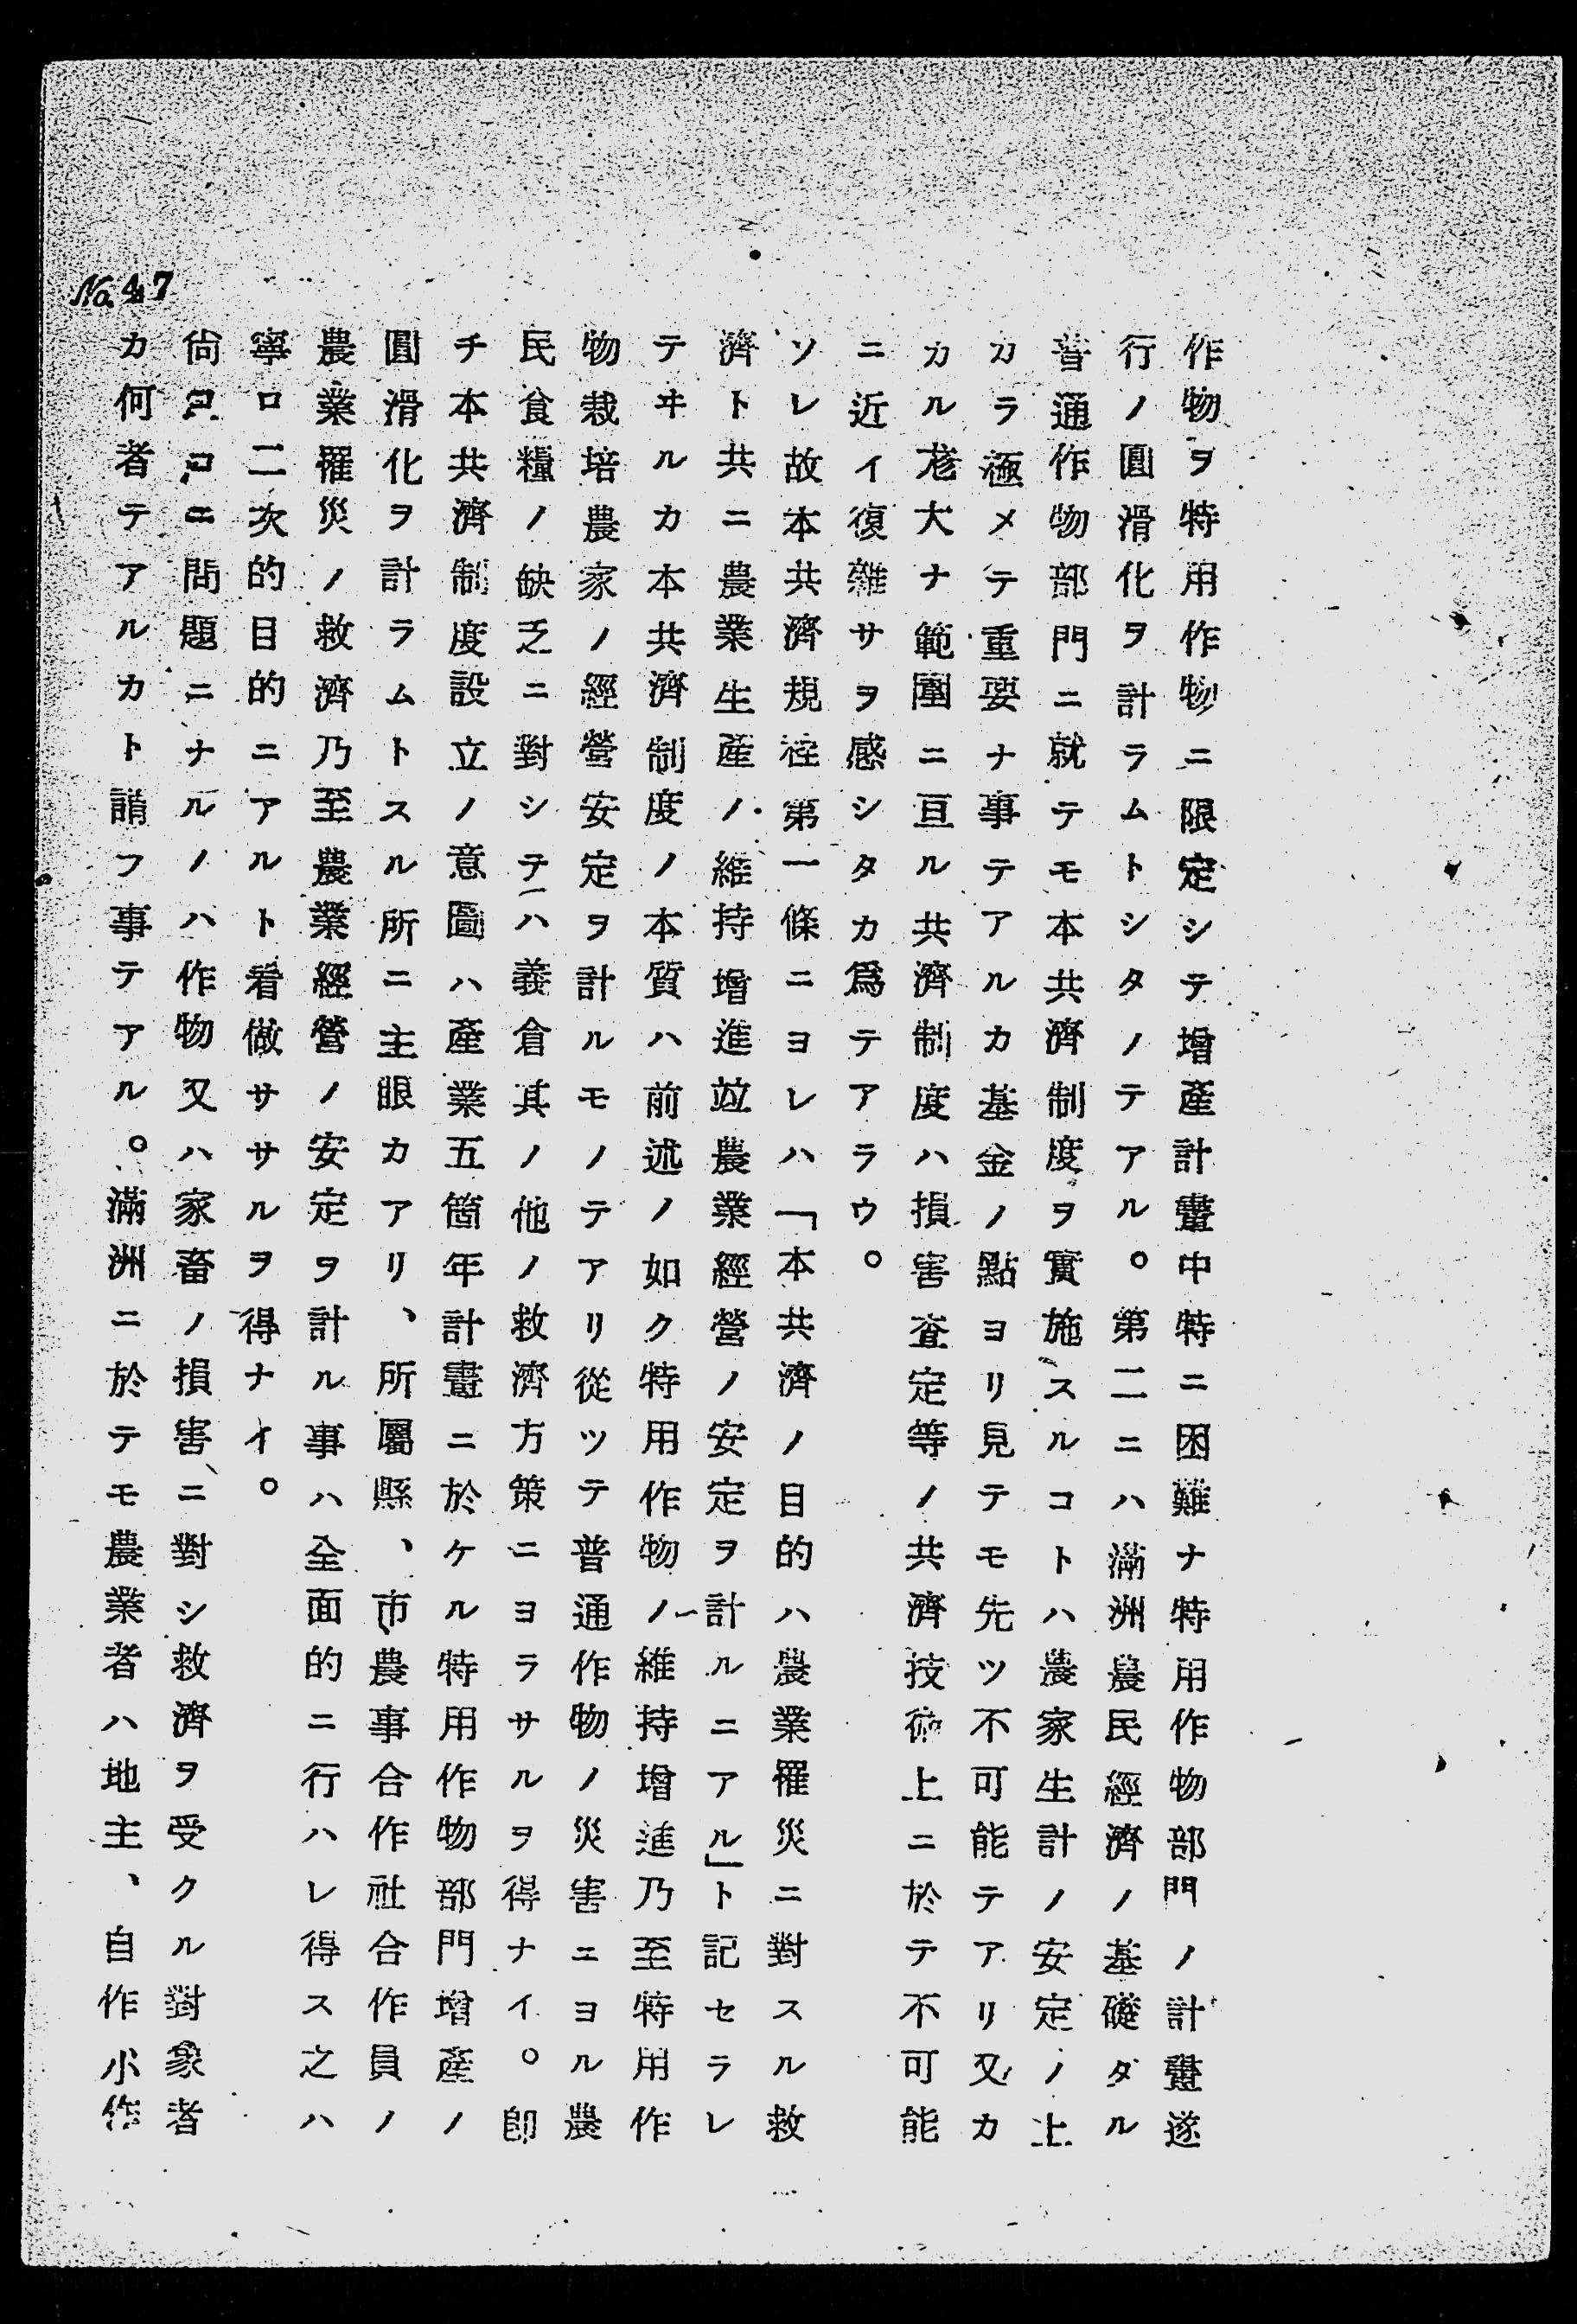 作物ヲ特用作物ニ限定シテ增產計畫中特ニ困難ナ特用作物部門ノ計畫遂
行ノ圓滑化ヲ計ラムトシタノテアル。第二ニハ滿洲農民經濟ノ基礎ダル
普通作物部門ニ就テモ本共濟制度ヲ實施スルコトハ農家生計ノ安定ノ上
カラ極メテ重要ナ事テアルカ基金ノ點ヨリ見テモ先ツ不可能テアリ又カ
カル尨大ナ範圍ニ亘ル共濟制度ハ損害査定等ノ共濟技術上ニ於テ不可能
ニ近イ復雜サヲ感シタカ爲テアラウ。
ソレ故本共濟規程第一條ニヨレハ「本共濟ノ目的ハ農業罹災ニ對スル救
濟ト共ニ農業生產ノ維持增進竝農業經營ノ安定ヲ計ルニアル」ト記セラレ
テヰルカ本共濟制度ノ本質ハ前述ノ如ク特用作物ノ維持增進乃至特用作
物栽培農家ノ經營安定ヲ計ルモノテアリ從ツテ普通作物ノ災害ニヨル農
民食糧ノ缺乏ニ對シテハ義倉其ノ他ノ救濟方策ニヨラサルヲ得ナイ。卽
チ本共濟制度設立ノ意圖ハ產業五箇年計畫ニ於ケル特用作物部門增產ノ
圓滑化ヲ計ラムトスル所ニ主眼カアリ、所屬縣、市農事合作社合作員ノ
農業罹災ノ救濟乃至農業經營ノ安定ヲ計ル事ハ全面的ニ行ハレ得ス之ハ
寧ロ二次的目的ニアルト看做サザルヲ得ナイ。
尙ココニ問題ニナルノハ作物又ハ家畜ノ損害ニ對シ救濟ヲ受クル對象者
カ何者テアルカト謂フ事テアル。滿洲ニ於テモ農業者ハ地主、自作小作
No.47